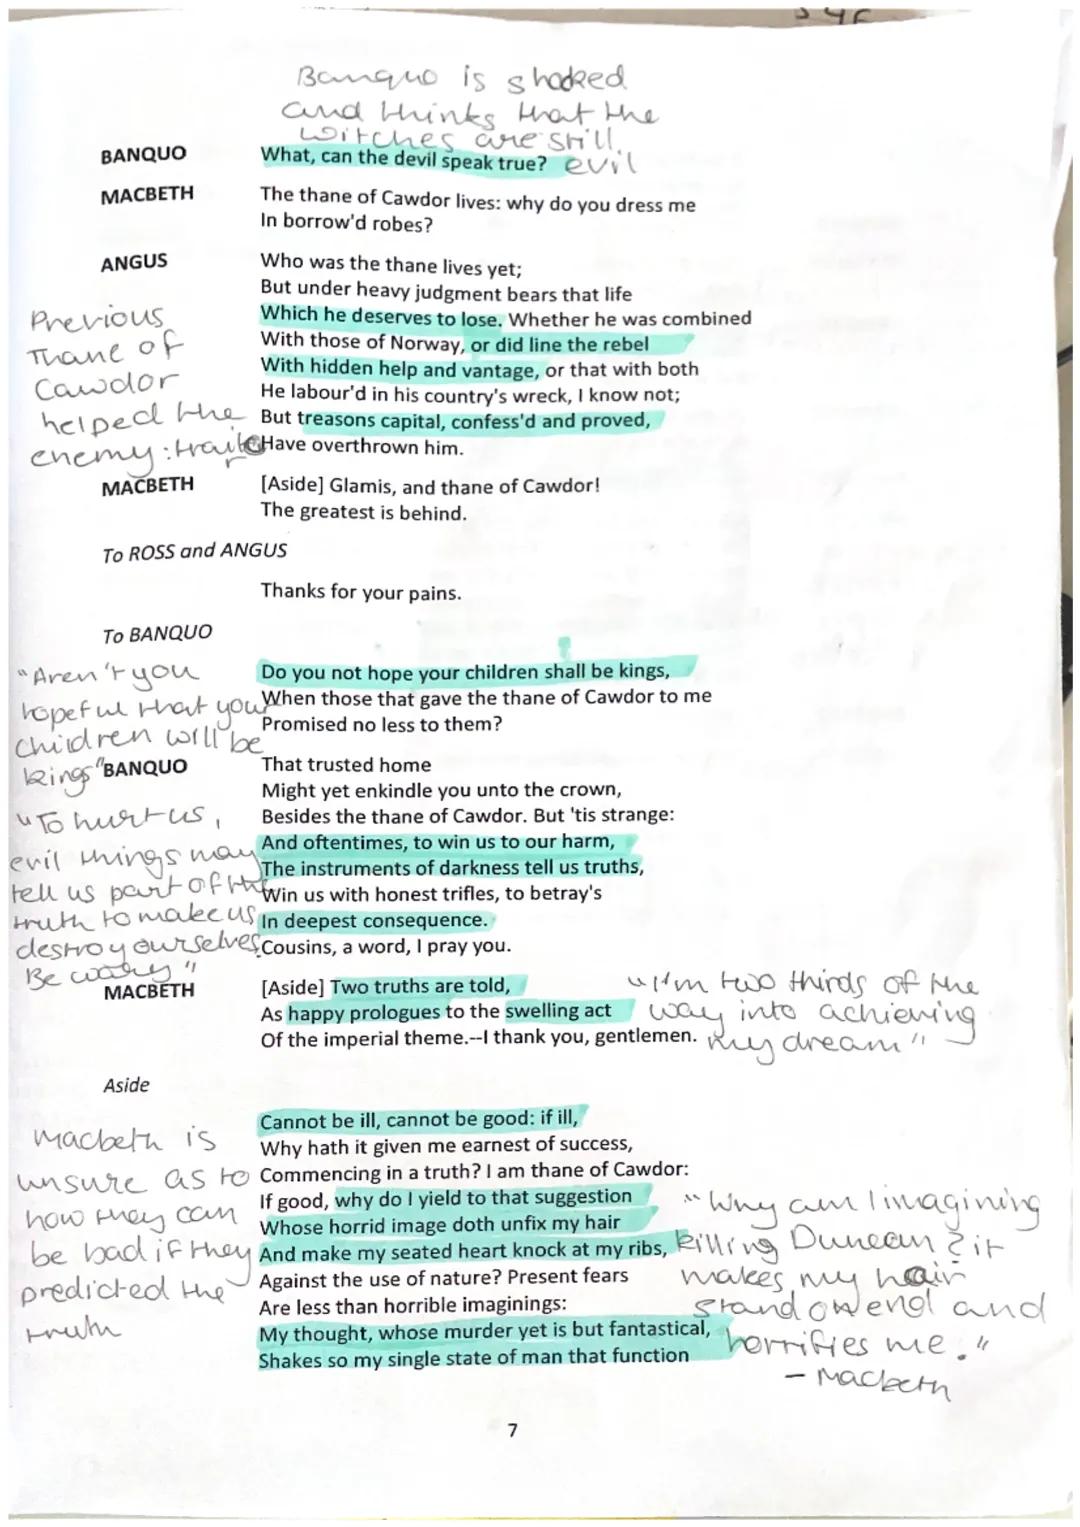 Banquo is shocked
and thinks that the
witches are still
evil
BANQUO What, can the devil speak true?
MACBETH The thane of Cawdor lives: why do you dress me
In borrow'd robes?
ANGUS Who was the thane lives yet;
But under heavy judgment bears that life
Which he deserves to lose. Whether he was combined
With those of Norway, or did line the rebel
With hidden help and vantage, or that with both
He labour'd in his country's wreck, I know not;
But treasons capital, confess'd and proved,
Have overthrown him.
Previous
Thane of
Cawdor
helped the
enemy: traitor
MACBETH [Aside] Glamis, and thane of Cawdor!
The greatest is behind.
To ROSS and ANGUS
Thanks for your pains.
To BANQUO
Do you not hope your children shall be kings,
When those that gave the thane of Cawdor to me
Promised no less to them?
"Aren't you
hopeful that your
children will be
kings"
BANQUO That trusted home
Might yet enkindle you unto the crown,
Besides the thane of Cawdor. But 'tis strange:
And oftentimes, to win us to our harm,
The instruments of darkness tell us truths,
Win us with honest trifles, to betray's
In deepest consequence.
Cousins, a word, I pray you.
"To hurt us,
evil things may
tell us part of the
truth to make us
destroy ourselves.
Be wary"
MACBETH [Aside] Two truths are told,
As happy prologues to the swelling act
Of the imperial theme.--I thank you, gentlemen.
"I'm two thirds of the
way into achieving
my dream"
Aside
Cannot be ill, cannot be good: if ill,
Why hath it given me earnest of success,
Commencing in a truth? I am thane of Cawdor:
If good, why do I yield to that suggestion
Whose horrid image doth unfix my hair
And make my seated heart knock at my ribs,
Against the use of nature? Present fears
Are less than horrible imaginings:
My thought, whose murder yet is but fantastical,
Shakes so my single state of man that function
Macbeth is
unsure as to
how they can
be bad if they
predicted the
truth
"Why am I imagining
killing Duncan? it
makes my hair
stand on end and
horrifies me."
- Macbeth
7